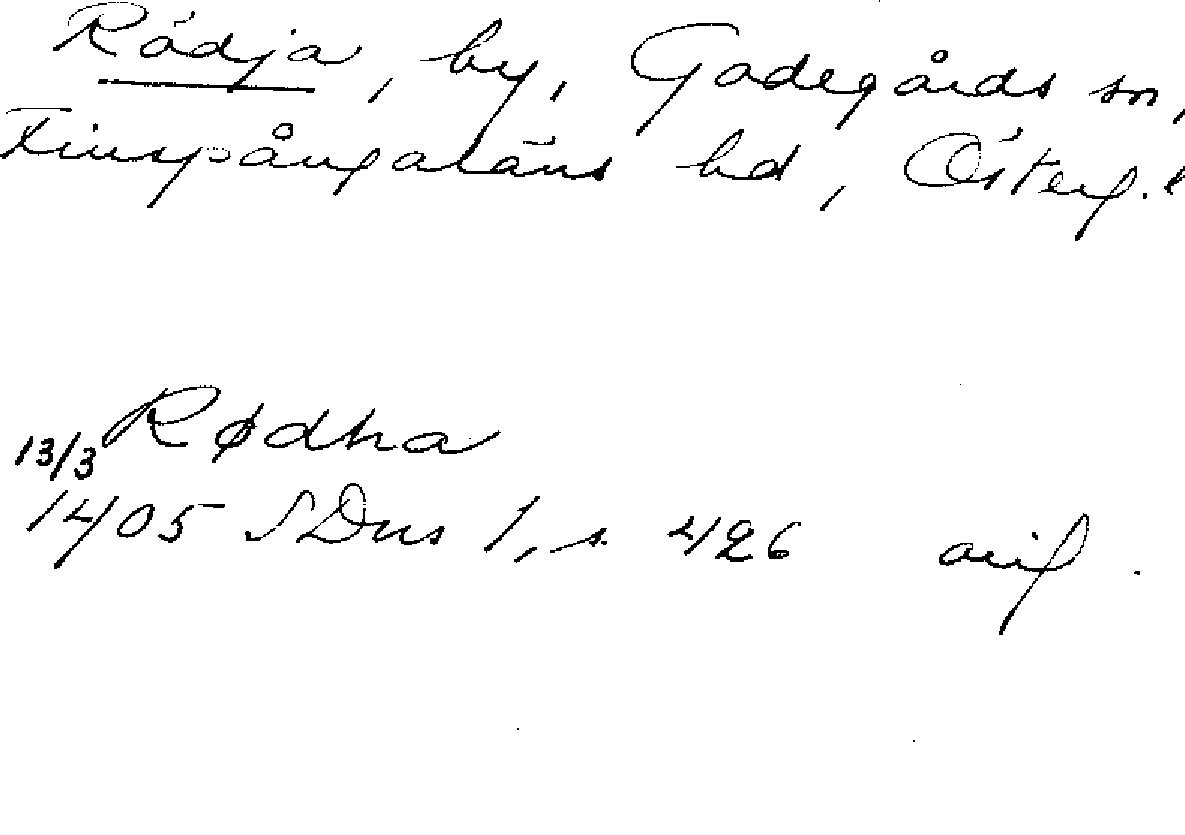 Rödja, by, Godegårds sn,
Finspångaläns hd, Österg. l
Rødha
13/3
1405 SDns 1, s. 426 orig.